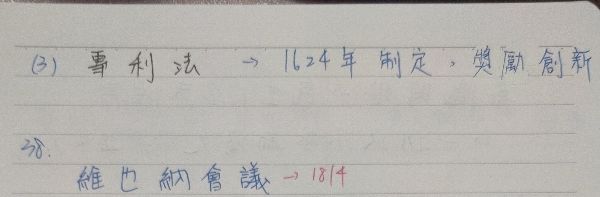 (3) 專利法 → 1624年制定，獎勵創新
38.
維也納會議 → 1814